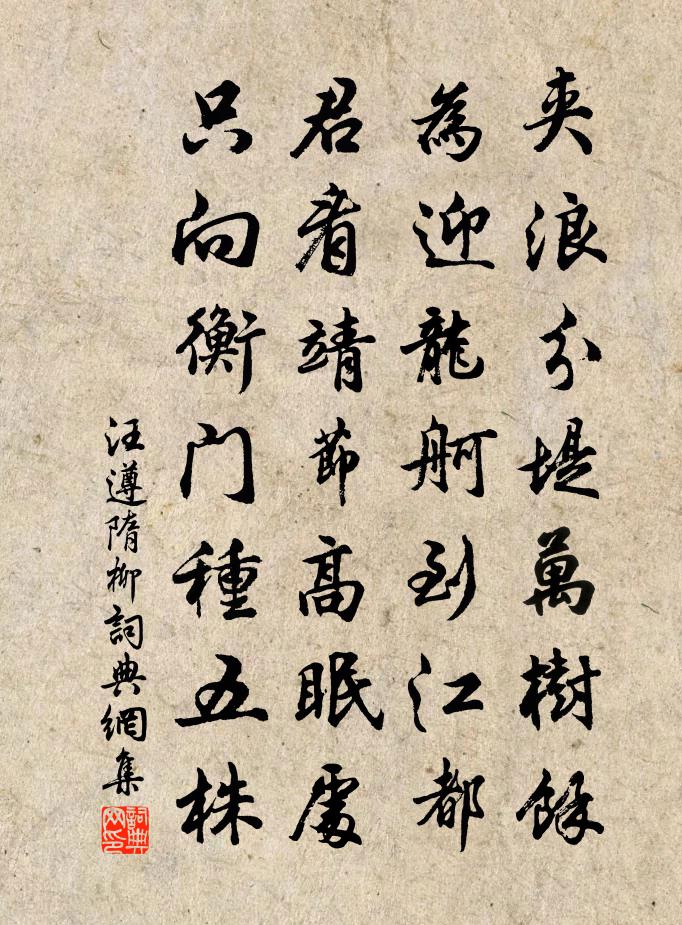 夾浪分堤萬樹餘
為迎龍舸到江都
君看靖節高眠處
只向衡門種五株
汪遵隋柳詞典網集
詞典網印